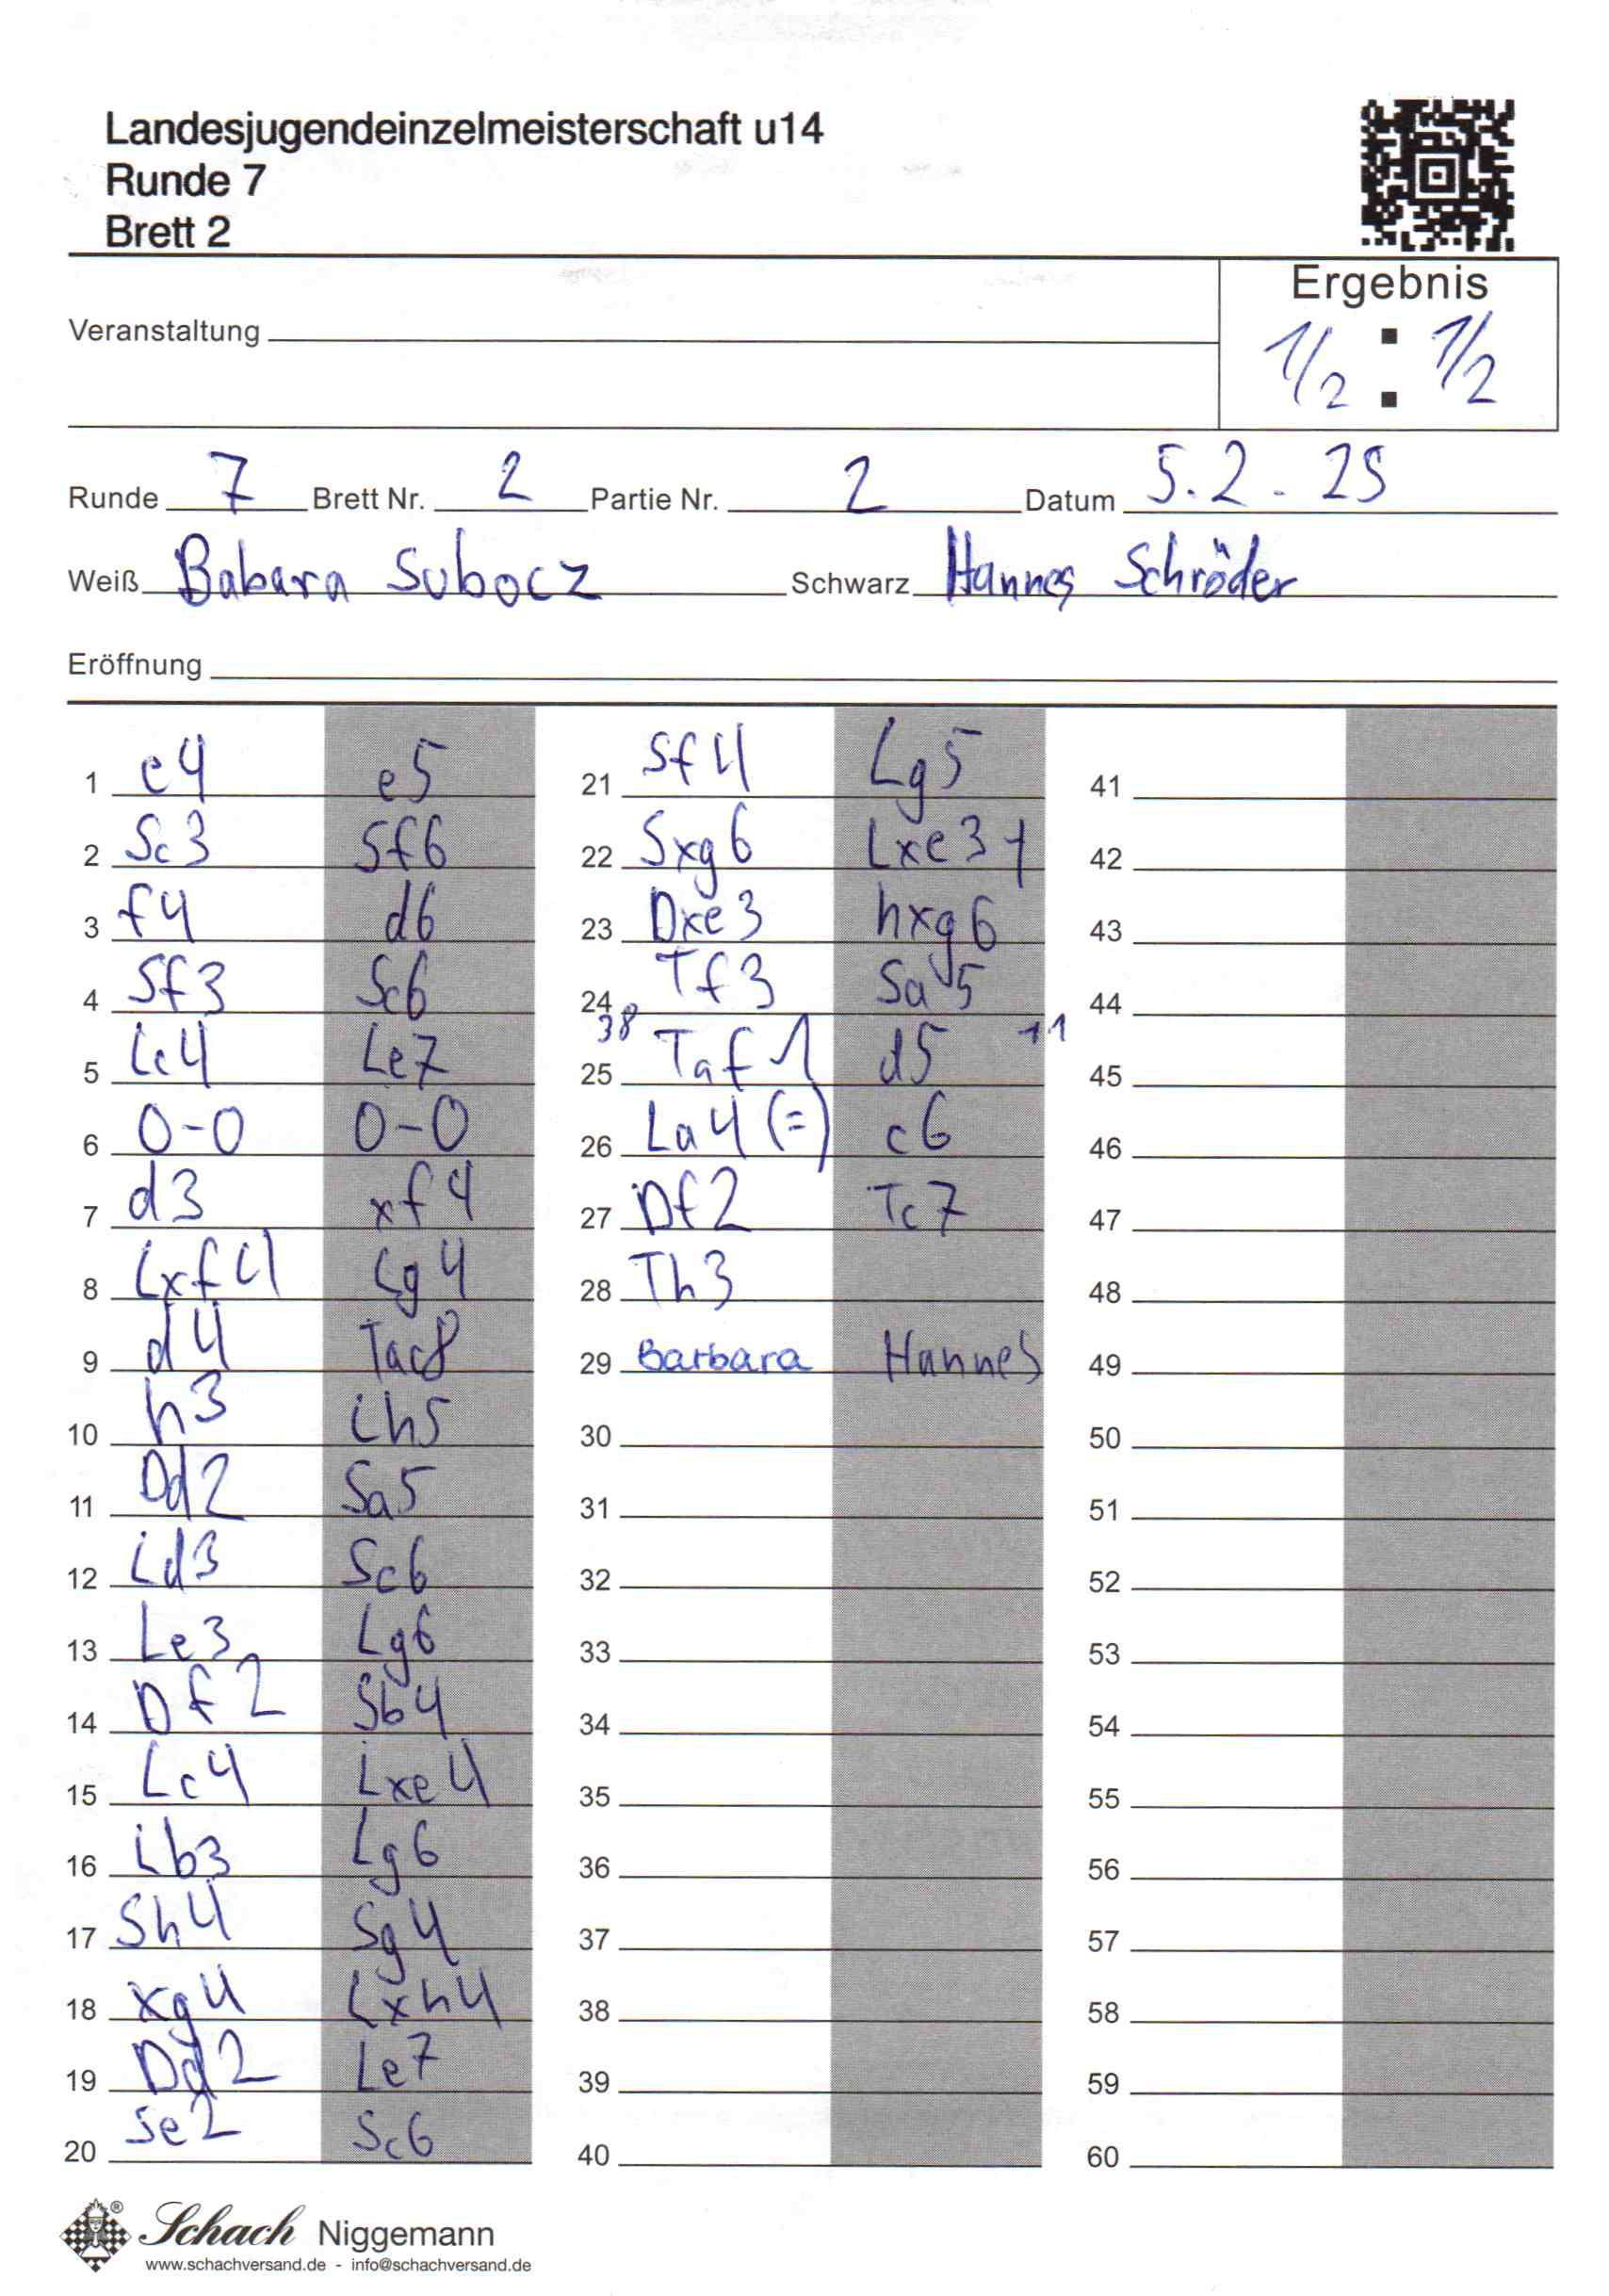 Landesjugendeinzelmeisterschaft u14
Runde 7
Brett 2
Ergebnis
Veranstaltung
1/2 : 1/2
Runde 7 Brett Nr. 2 Partie Nr. 2 Datum 5.2.25
Weiß Babara Subocz Schwarz Hannes Schröder
Eröffnung
1 e4 e5
2 Sc3 Sf6
3 f4 d6
4 Sf3 Sc6
5 Lc4 Le7
6 0-0 0-0
7 d3 xf4
8 Lxf4 Lg4
9 d4 Tac8
10 h3 Lh5
11 Dd2 Sa5
12 Ld3 Sc6
13 Le3 Lg6
14 Df2 Sb4
15 Lc4 Lxe4
16 Lb3 Lg6
17 Sh4 Sg4
18 xg4 Lxh4
19 Dd2 Le7
20 Se2 Sc6
21 Sf4 Lg5
22 Sxg6 Lxe3+
23 Dxe3 hxg6
24 Tf3 Sa5
38 +1
25 Taf1 d5
26 La4 (=) c6
27 Df2 Tc7
28 Th3
29 Barbara Hannes
30
31
32
33
34
35
36
37
38
39
40
41
42
43
44
45
46
47
48
49
50
51
52
53
54
55
56
57
58
59
60
Schach Niggemann
www.schachversand.de - info@schachversand.de